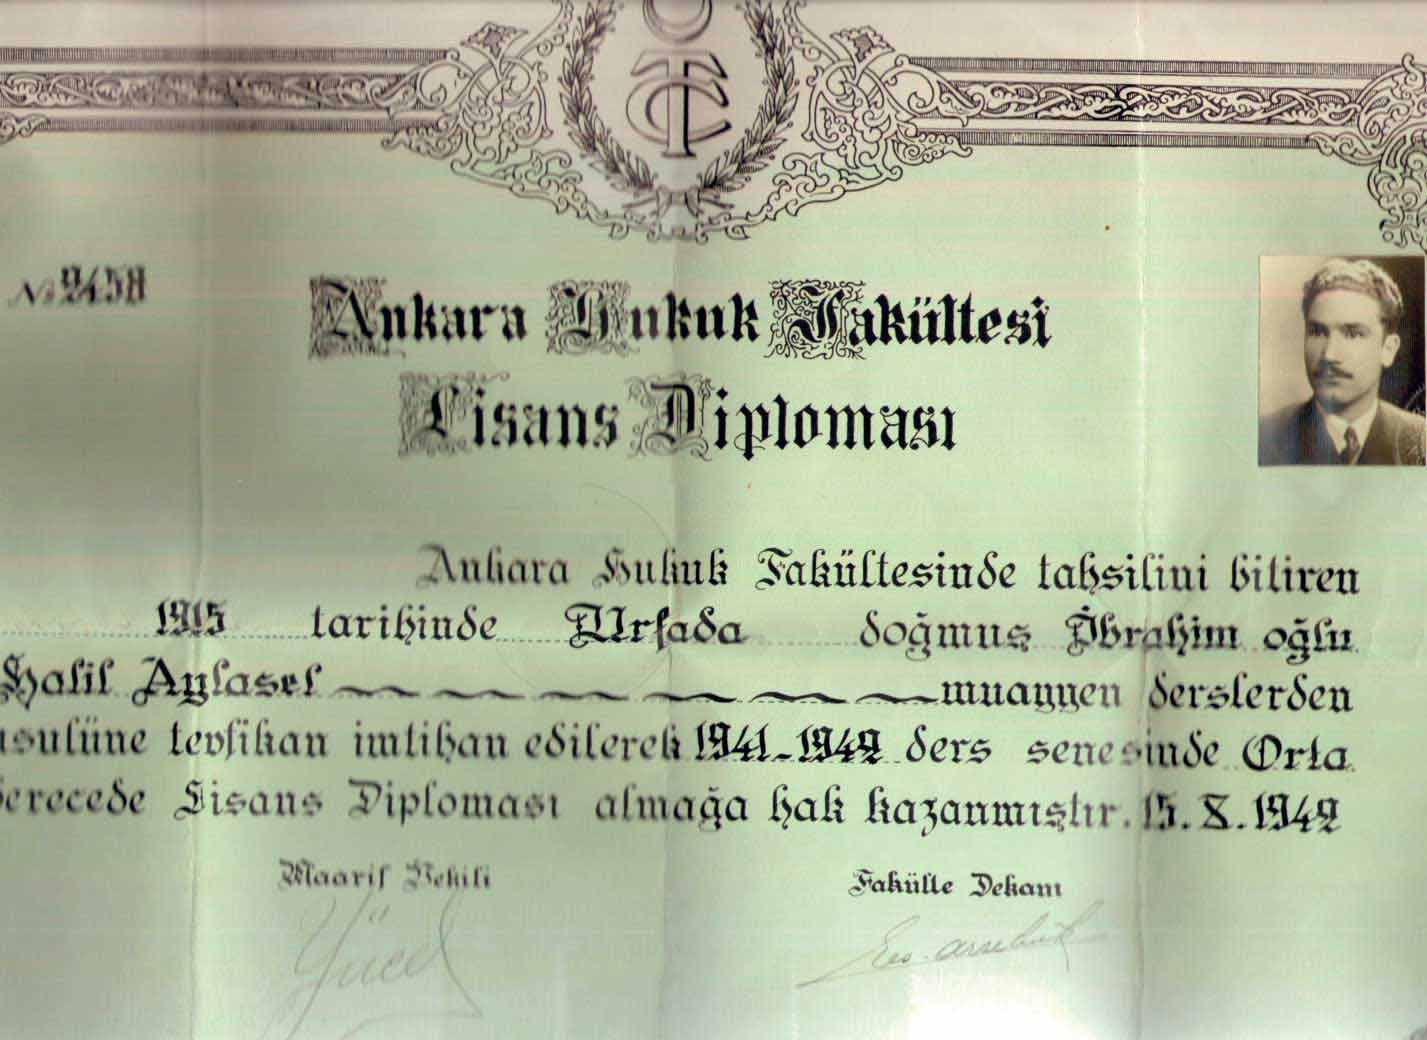 TC
№ 2458
Ankara Hukuk Fakültesi
Lisans Diploması
Ankara Hukuk Fakültesinde tahsilini bitiren
1915 tarihinde Urfada doğmuş İbrahim oğlu
Halil Aylasel muayyen derslerden
usulüne tevfikan imtihan edilerek 1941-1942 ders senesinde Orta
derecede Lisans Diploması almağa hak kazanmıştır. 15. X. 1942
Maarif Vekili Fakülte Dekanı
Yücel